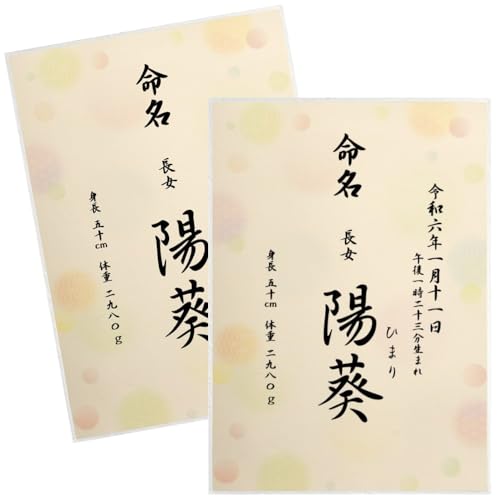 命名
長女
陽葵
身長 五十cm 体重 二九八〇g
令和六年一月十一日
午後一時二十三分生まれ
命名
長女
陽葵
ひまり
身長 五十cm 体重 二九八〇g